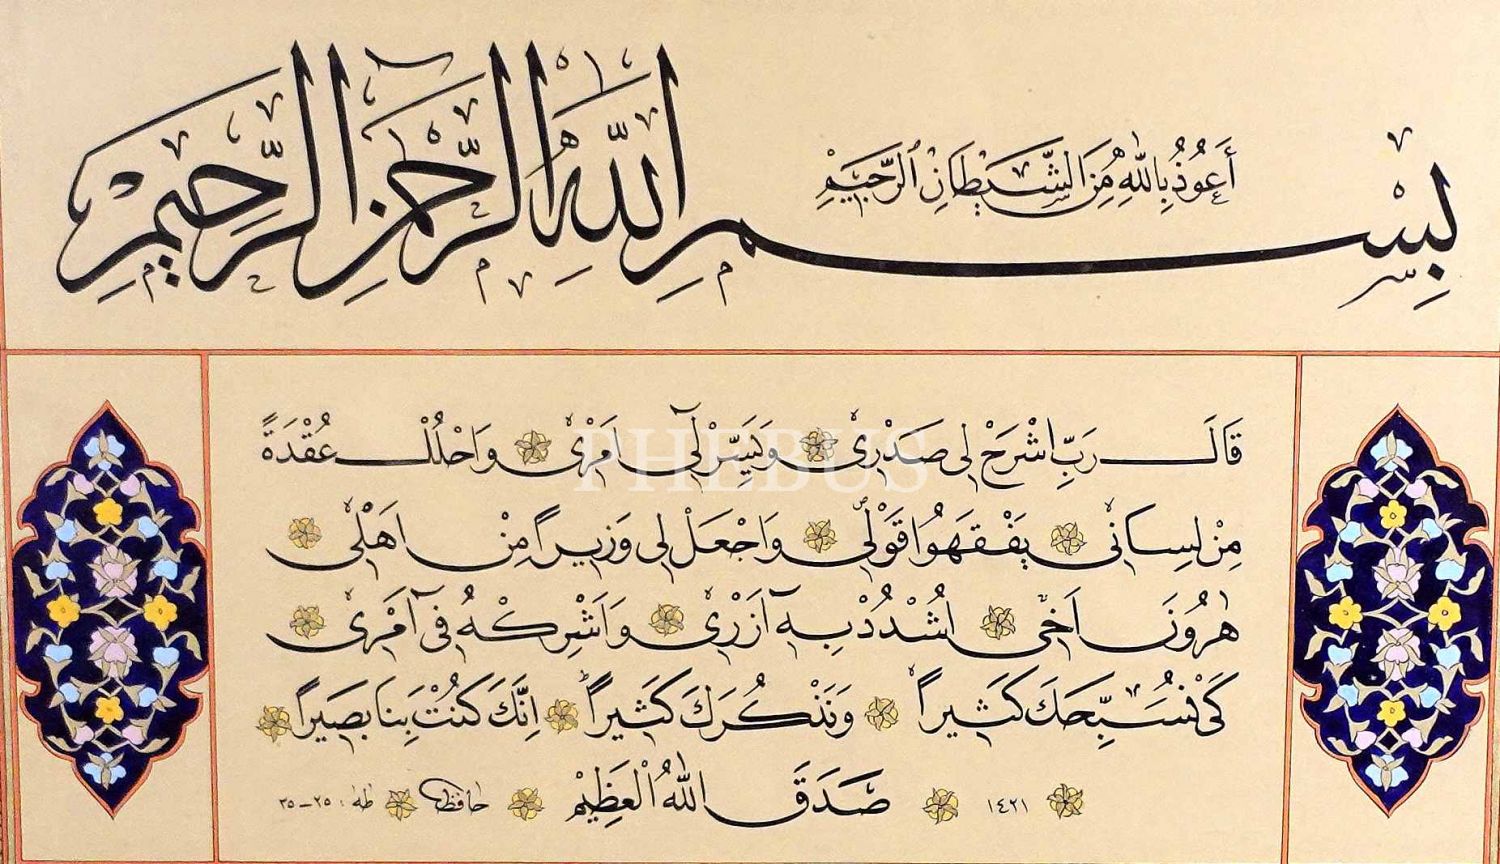 أَعُوذُ بِاللّٰهِ مِنَ الشَّيْطَانِ الرَّجِيمِ
بِسْمِ اللّٰهِ الرَّحْمٰنِ الرَّحِيمِ
قَالَ رَبِّ اشْرَحْ لِى صَدْرِى وَيَسِّرْ لِٓى اَمْرِى وَاحْلُلْ عُقْدَةً
مِنْ لِسَانِى يَفْقَهُوا قَوْلِى وَاجْعَلْ لِى وَزِيرًا مِنْ اَهْلِى
هٰرُونَ اَخِى اشْدُدْ بِهٓ اَزْرِى وَاَشْرِكْهُ فِٓى اَمْرِى
كَىْ نُسَبِّحَكَ كَثِيرًا وَنَذْكُرَكَ كَثِيرًا اِنَّكَ كُنْتَ بِنَا بَصِيرًا
١٤٢١ صَدَقَ اللّٰهُ الْعَظِيْمُ حافظ طه : ٢٥ – ٣٥
PHEBUS